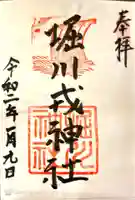 奉拝
堀川戎神社
令和二年一月九日